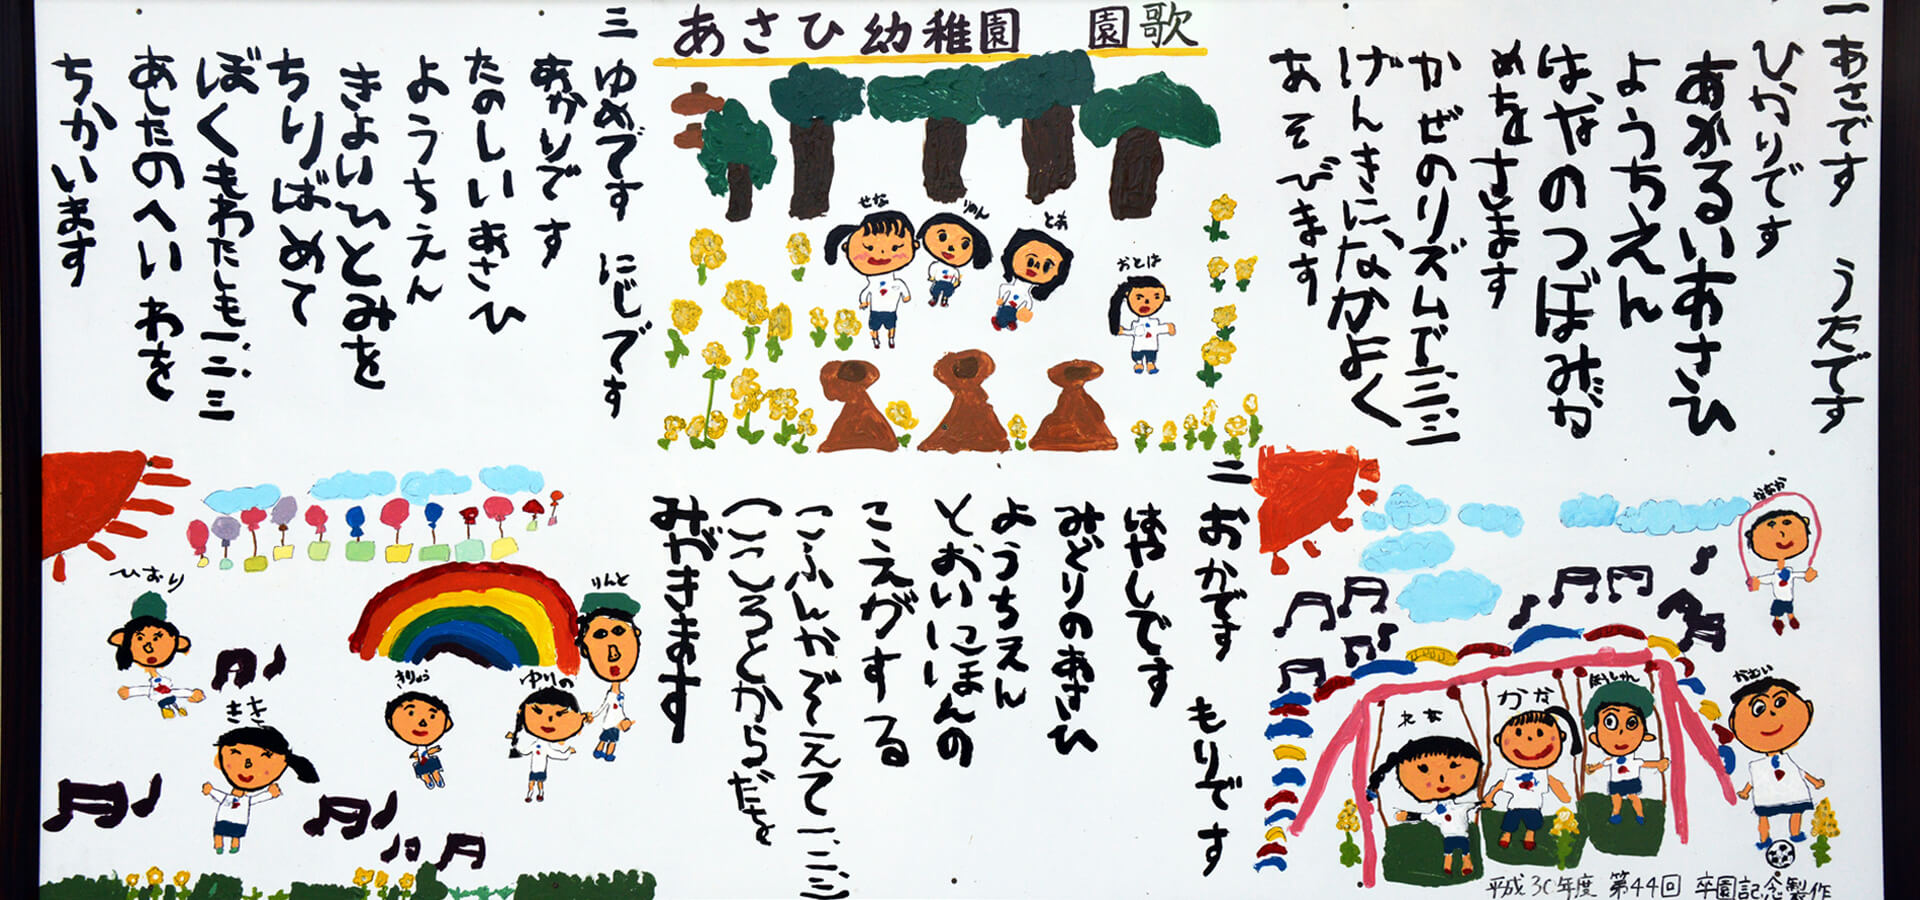 あさひ幼稚園 園歌
一 あさです うたです
ひかりです
あかるいあさひ
ようちえん
はなのつぼみが
めをさます
かぜのリズムで一、二、三
げんきに、なかよく
あそびます
二 おかです もりです
はやしです
みどりのあさひ
ようちえん
とおいにほんの
こえがする
こふんかぞえて一、二、三
こころとからだを
みがきます
三 ゆめです にじです
あかりです
たのしいあさひ
ようちえん
きよいひとみを
ちりばめて
ぼくもわたしも一、二、三
あしたのへいわを
ちかいます
せな
りのん
とあ
おとは
ひおり
さき
きりゅう
ゆりの
りんと
かな
かむい
平成30年度 第44回 卒園記念製作